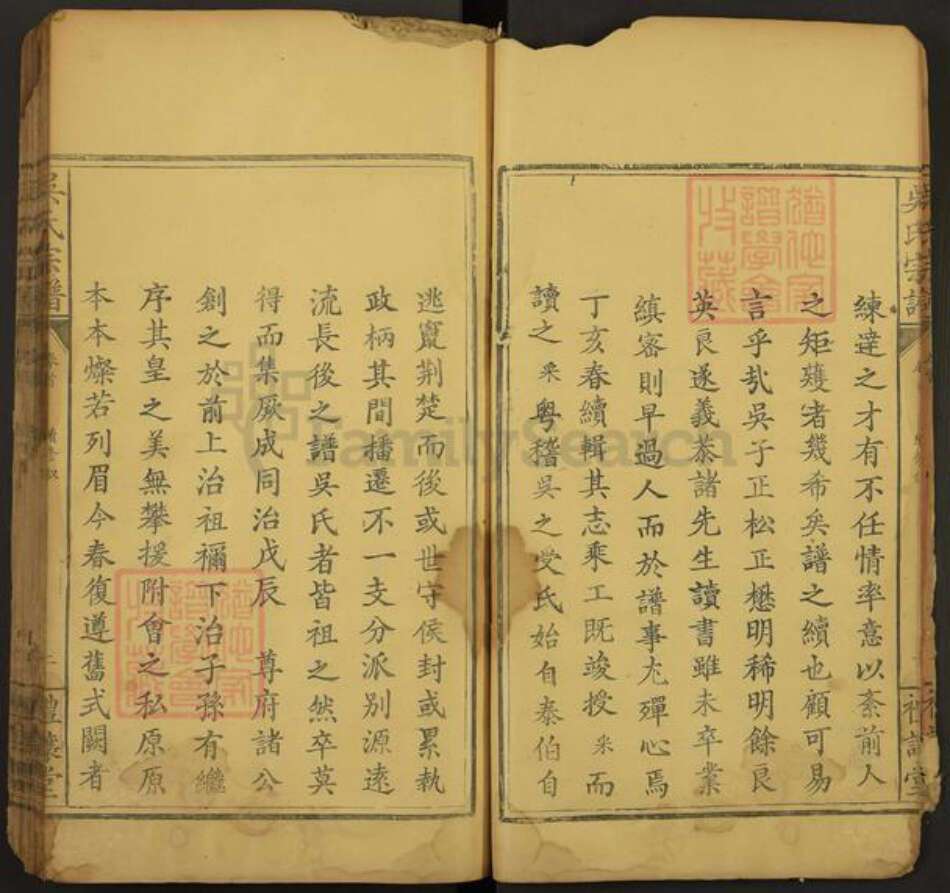 練達之才有不任情率意以紊前人
之矩矱者幾希矣譜之續也顧可易
言乎㢤吳子正松正懋明稀明餘良
英良遂義茶諸先生讀書雖未卒業
縝密則早過人而於譜事尢殫心焉
丁亥春續輯其志乘工既竣授釆而
讀之釆粵稽吳之受氏始自泰伯自
逃竄荆楚而後或世守侯封或累執
政柄其間播遷不一支分派别源遠
流長後之譜吳氏者皆祖之然卒莫
得而集厥成同治戊辰 尊府諸公
創之於前上治祖禰下治子孫有繼
序其皇之美無攀援附會之私原原
本本燦若列眉今春復遵舊式闕者
吳氏宗譜
吳氏宗譜
FamilySearch